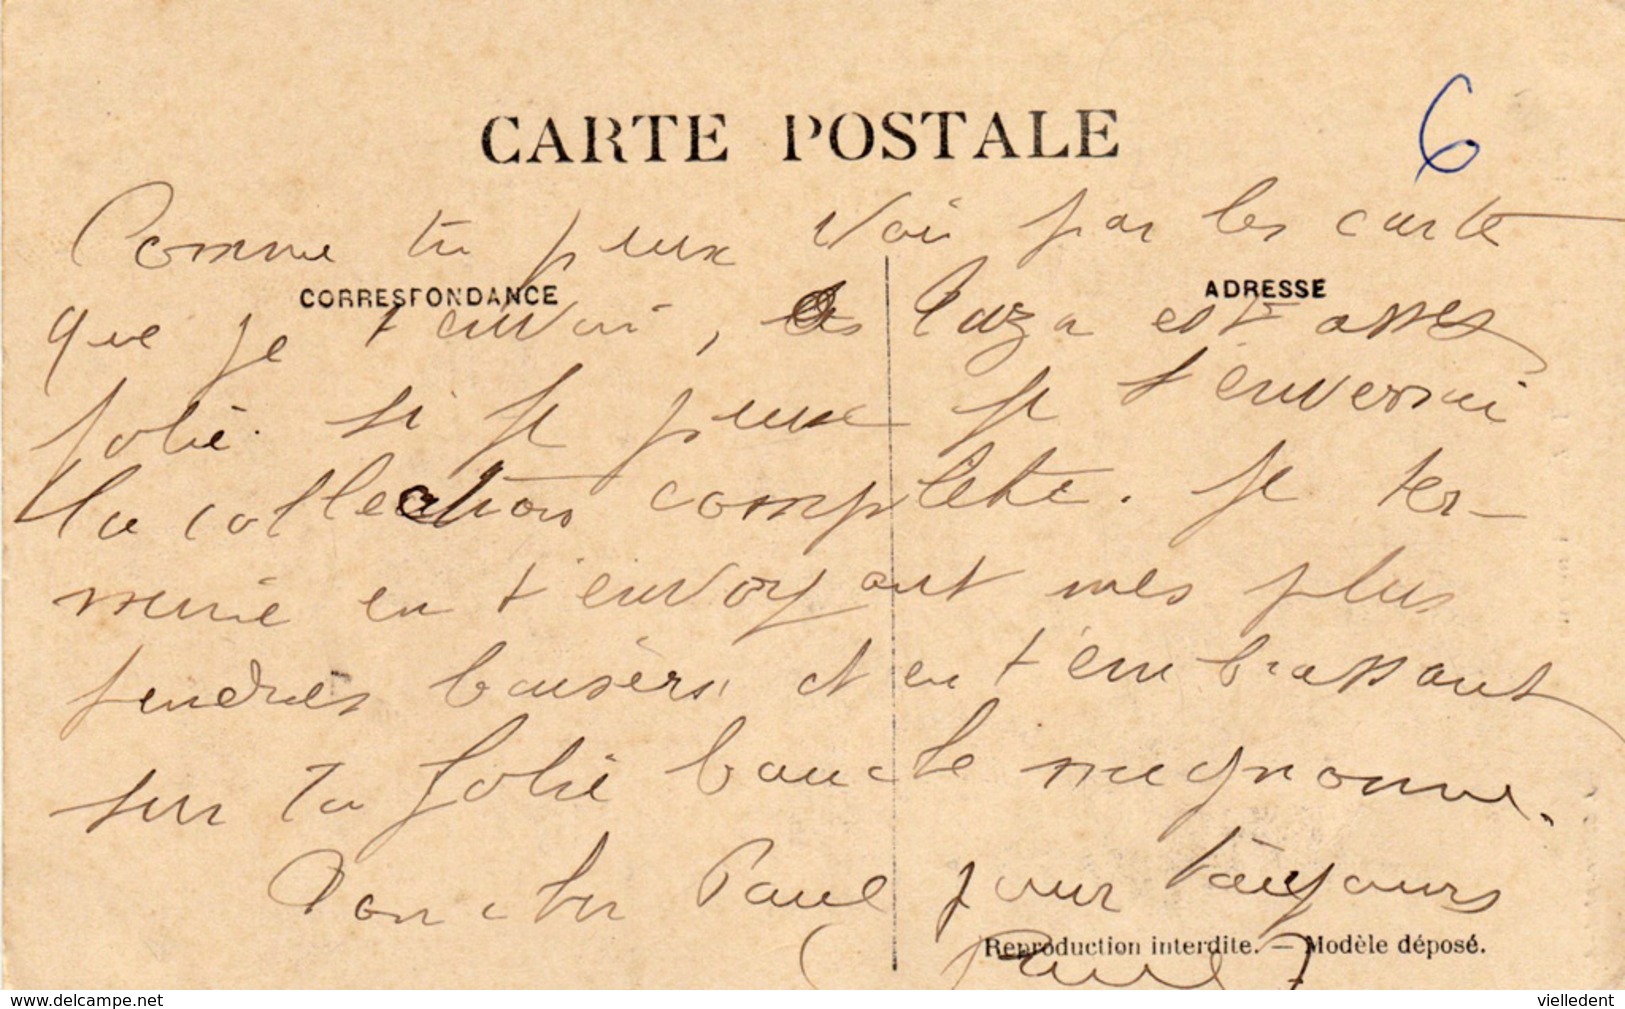 CARTE POSTALE
6
Comme tu peux voir par les carte
CORRESPONDANCE
ADRESSE
que je t'envoi, les Plaza est assez
jolie. si je peux je t'enverrai
la collection complète. je ter-
mine en t'envoyant mes plus
tendres baisers, et en t'embrassant
sur ta jolie bouche mignonne.
Ton cher Paul pour toujours
Reproduction interdite. — Modèle déposé.
Paul
www.delcampe.net
vielledent